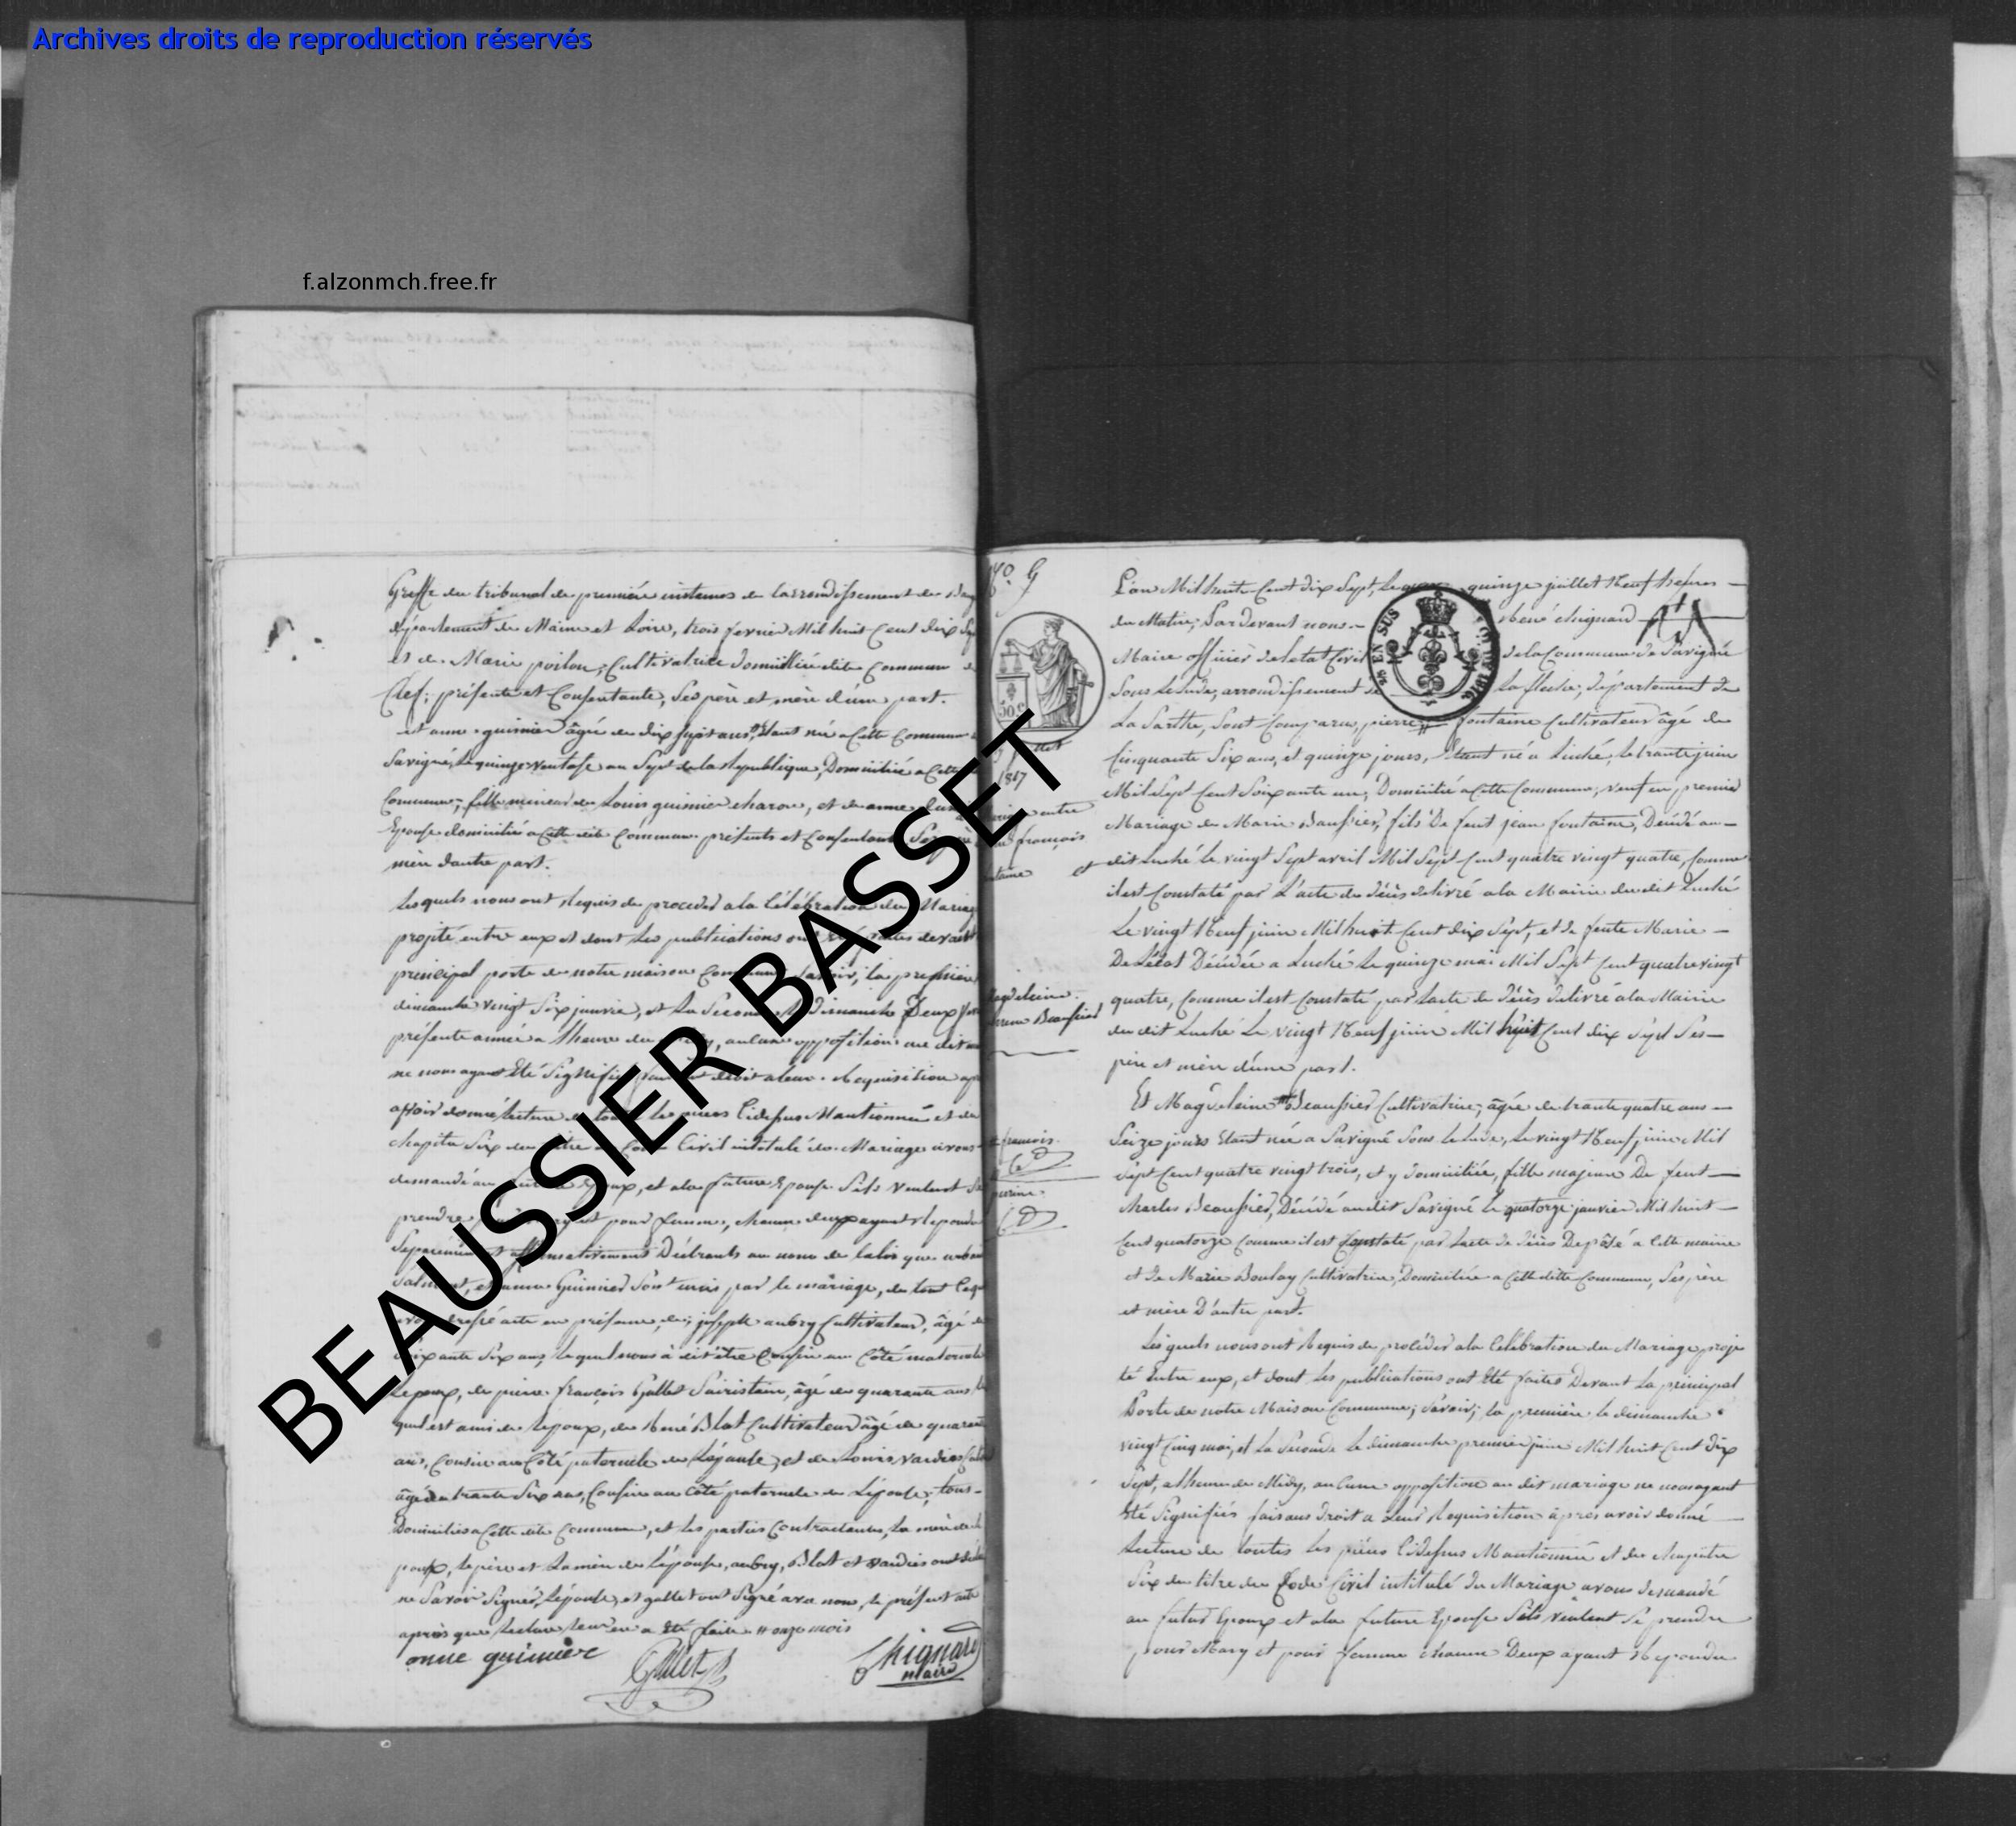 Archives droits de reproduction réservés
f.alzonmch.free.fr
Greffe du tribunal de première instance de larrondissement de
département de Maine et Loire, trois fevrier Mil huit Cent dix
et de Marie poilou, Cultivatrice domiciliée dite Commune
Clef; présente et Consentante, Ses père et mère dune part.
et anne guinier âgée de dix sept ans, Etant née a Cette Commune
Savigné, le quinze ventose an Sept de la République, Domiciliée a Cette
Commune; fille mineure de Louis guinier charon, et de anne
Epouse domiciliée a Cette dite Commune présents et Consentants Ses
mère dautre part.
Les quels nous ont Requis de proceder a la Célébration du Mariage
projeté entre eux et dont les publications ont été faites devant
principal porte de notre maison Commune Savoir, la première
dimanche vingt Six janvier, et La Seconde dimanche Deux
présente année a lheure de, aucune opposition au dit
ne nous ayant Eté Signifié, droit a leur Requisition
avoir donné lecture de toutes les pièces Cidessus Mantionnée et du
chapitre Six du titre du Code Civil intitulé du Mariage avons
demandé au futur Epoux, et a la future Epouse Sils veulent
prendre pour et pour femme, chacun deux ayant Repondu
Séparément et affirmativement Déclarons au nom de la loi que
et anne Guinier Sont unis par le mariage, de tout
dressé acte en présence de joseph aubry Cultivateur, âgé
Soixante Six ans, lequel nous à dit être Cousin au Côté maternel
Lepoux, de pierre françois Gallet Sairistain, âgé de quarante ans
quel est ami de lépoux, de René Blot Cultivateur âgé de
ans, Cousin au Côté paternele de Lépouse, et de Louis vaudier
âgé de trante Six ans, Cousin au Côté paternele de Lépouse, tous
Domiciliés a Cette dite Commune, et les parties Contractantes, La mère
poux, le père et La mère de Lépouse, aubry, Blot et vaudier ont
ne Savoir Signer, Lépouse, et gallet ont Signé avec nous, le présent acte
après que lecture leur en a Eté faite. onze mois
anne guinier
Gallet
Chignard
maire
50 C
1817
entre
françois
et
Magdeleine
Beaussier
françois
L'an Mil huit Cent dix Sept, le quinze juillet Neuf heures
du Matin; Pardevant nous René chignard
Maire officier de letat Civil de la Commune de Savigné
Sous le Lude, arrondissement de La fleche, département de
La Sarthe, Sont Comparus, pierre fontaine Cultivateur âgé de
Cinquante Six ans, et quinze jours, Etant né a Luché, le trante juin
Mil Sept Cent Soixante un, Domicilié a Cette Commune, veuf en premier
Mariage de Marie Beaussier, fils De feut jean fontaine, Décédé au
dit Luché le vingt Sept avril Mil Sept Cent quatre vingt quatre, Comme
il est Constaté par L'acte de décès delivré a la Mairie du dit Luché
Le vingt Neuf juin Mil huit Cent dix Sept, et de feute Marie
Décédée a Luché Le quinze mai Mil Sept Cent quatre vingt
quatre, Comme il est Constaté par lacte de décès delivré a la Mairie
du dit Luché Le vingt Neuf juin Mil huit Cent dix Sept Ses
père et mère dune part.
Et Magdeleine Beaussier Cultivatrice, âgée de trante quatre ans
Seize jours Etant née a Savigné Sous le Lude, Le vingt Neuf juin Mil
Sept Cent quatre vingt trois, et y domiciliée, fille majeure De feut
charles Beaussier, Décédé au dit Savigné le quatorze janvier Mil huit
Cent quatorze Comme il est Constaté par lacte de décès Deposé a Cette mairie
et de Marie Boulay Cultivatrice, Domiciliée a Cette dite Commune, Ses père
et mère D'autre part.
Les quels nous ont Requis de procéder a la Célébration du Mariage proje
té Entre eux, et dont les publications ont Eté faites Devant La principal
Porte de notre Maison Commune; Savoir; la première le dimanche
vingt Cinq mai, et La Seconde Le dimanche premier juin Mil huit Cent Dix
Sept, a lheure de Midy, aucune opposition au dit mariage ne nous ayant
Eté Signifiés faisans Droit a Leur Requisition après avoir donné
Lecture de toutes les pièces Cidessus Mantionnée et du chapitre
Six du titre du Code Civil intitulé du Mariage avons demandé
au futur Epoux et a la future Epouse Sils veulent Se prendre
pour Mary et pour femme chacun Deux ayant Repondu
BEAUSSIER BASSET